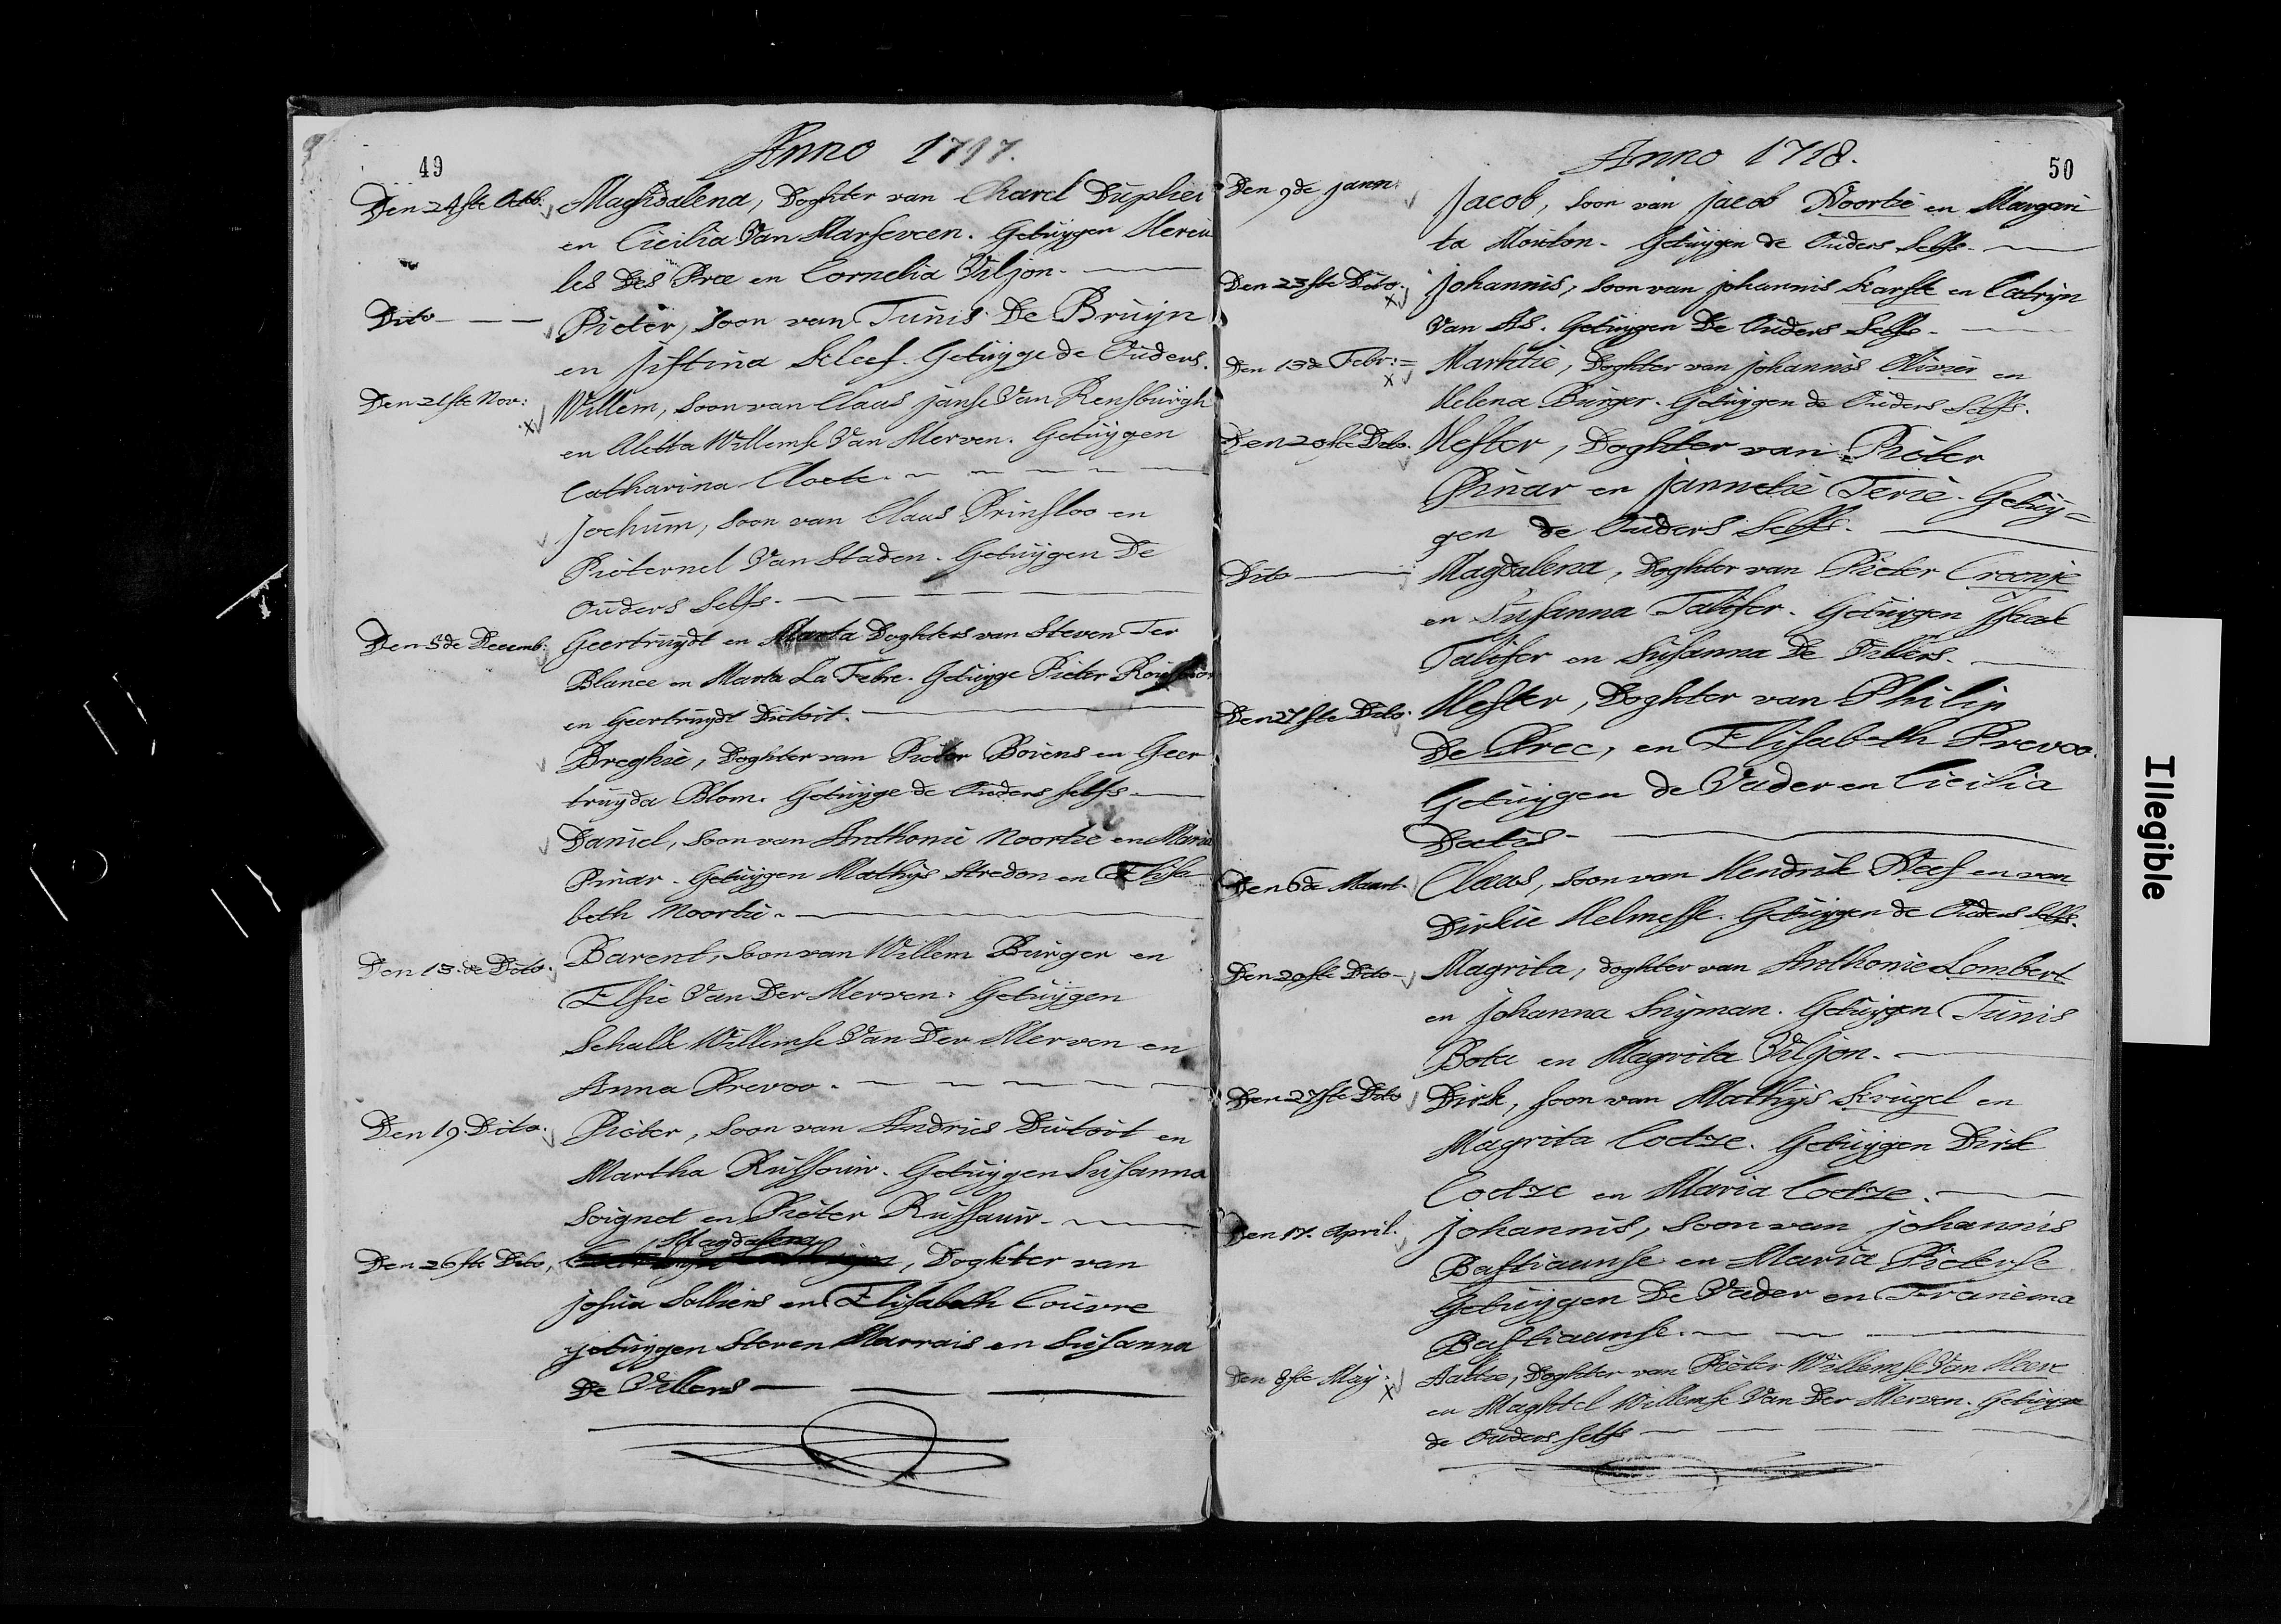 49
Anno 1717.
Den 24ste Octb: Maghdalena, Doghter van Charel Dupliei
en Cicilia Van Marseveen. Getuygen Hercu
les Des Pree en Cornelia Viljon.
Dito Pieter, Soon van Tunis De Bruyn
en Justina Kleef. Getuyge de Ouders.
Den 21ste Nov: Willem, Soon van Claas Janse Van Rensburgh
en Aletta Willemse Van Merven. Getuygen
Catharina Cloete.
Jochum, Soon van Claas Prinsloo en
Pieternel Van Staden. Getuygen De
Ouders Selfs.
Den 5de Decemb: Geertruydt en Marta Doghters van Steven Ter
Blance en Marta La Febre. Getuyge Pieter
en Geertruydt Dutoit.
Breghie, Doghter van Pieter Boiens en Geer
truyda Blom. Getuyge de Ouders selfs
Daniel, Soon van Anthonie Noortie en Maria
Pinar. Getuygen Mathys Stredon en Elisa
beth Noortie.
Den 13de Dito. Barent, Soon van Willem Burger en
Elsie Van Der Merven. Getuygen
Schalk Willemse Van Der Merven en
Anna Prevoo.
Den 19 Dito. Pieter, Soon van Andries Dutoit en
Martha Russouw. Getuygen Susanna
Soignet en Pieter Russauw.
Magdalena
Den 26ste Dito, , Doghter van
Josua Solliers en Elisabeth Couvre
getuygen Steven Marrais en Susanna
De Villers
Anno 1718.
50
Den 9de Jann: Jacob, Soon van Jacob Noortie en Margari
ta Mouton. Getuygen de Ouders Selfs.
Den 23ste Dito. Johannis, Soon van Johannis Karste en Catryn
Van As. Getuygen De Ouders Selfs.
Den 13de Febr: Marhtie, Doghter van Johannis Olivier en
Helena Burger. Getuygen de Ouders Selfs.
Den 20ste Dito. Hester, Doghter van Pieter
Pinar en Jannetie Terie. Getuy=
gen de Ouders Selfs.
Dito Magdalena, Doghter van Pieter Cronje
en Susanna Talifer. Getuygen Isaak
Talifer en Susanna De Villers.
Den 27ste Dito. Hester, Doghter van Philip
De Pree, en Elisabeth Prevoo.
Getuygen de Vader en Cicilia
Den 6de Maart. Claas, Soon van Hendrik Neef en van
Dirkie Helmesse. Getuygen de Ouders Selfs.
Den 20ste Dito Magrita, doghter van Anthonie Lombert
en Johanna Snyman. Getuygen Tunis
Bota en Magrita Viljon.
Den 27ste Dito Dirk, Soon van Mathys Krugel en
Magrita Coetze. Getuygen Dirk
Coetze en Maria Coetze.
Den 17. April. Johannis, Soon van Johannis
Bastiaanse en Maria Pieterse
Getuygen De Vader en
Bastiaanse.
Den 8ste May: Aaltie, Doghter van Pieter Willemse Van Heere
en Maghtel Willemse Van Der Merven. Getuyge
de Ouders selfs
Illegible